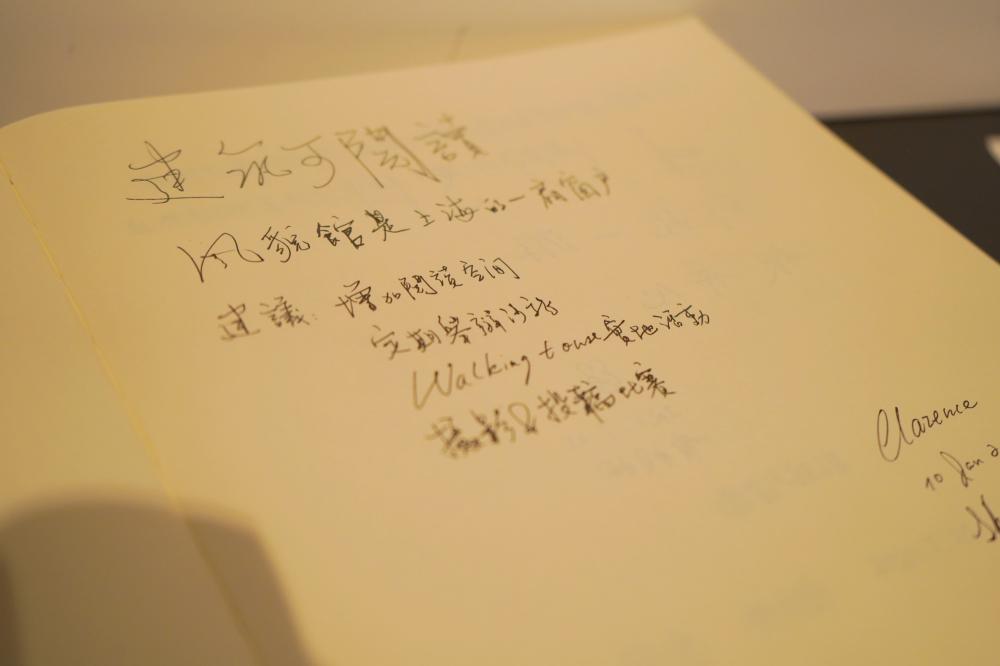 建筑可閱讀
风貌館是上海的一扇窗户
建議：增加閱讀空间
定期舉辦沙龍
Walking tour實地活動
攝影&投稿比賽
Clarence
10 Jan 2
Sh